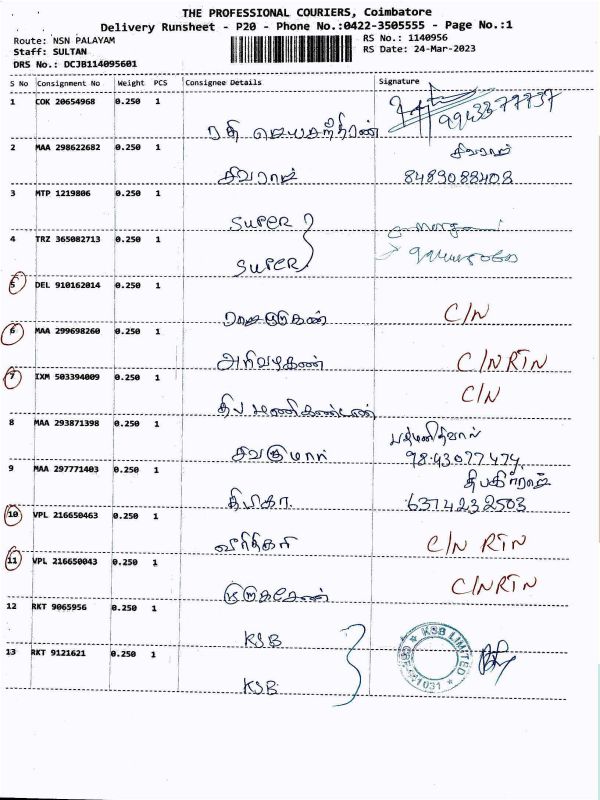 THE PROFESSIONAL COURIERS, Coimbatore
Delivery Runsheet - P20 - Phone No.:0422-3505555 - Page No.:1
Route: NSN PALAYAM
RS No.: 1140956
Staff: SULTAN
RS Date: 24-Mar-2023
DRS No.: DCJB114095601
S No Consignment No Weight PCS Consignee Details Signature
1 COK 20654968 0.250 1
ரதி ஜெயசந்திரன்
2 MAA 298622682 0.250 1 சிவராஜ்
சிவராஜ் 8489088408
3 MTP 1219806 0.250 1
SUPER
4 TRZ 365082713 0.250 1
SUPER
5 DEL 910162014 0.250 1
C/N
6 MAA 299698260 0.250 1
அறிவழகன் C/N RTN
7 IXM 503394009 0.250 1 C/N
தீபமணிகண்டன்
8 MAA 293871398 0.250 1
சிவகுமார் 9843077474
9 MAA 297771403 0.250 1
தீபிகா. 6374232503
10 VPL 216650463 0.250 1
C/N RTN
11 VPL 216650043 0.250 1
முருகேசன் C/N RTN
12 RKT 9065956 0.250 1
KSB
13 RKT 9121621 0.250 1
KSB
KSB LIMITED